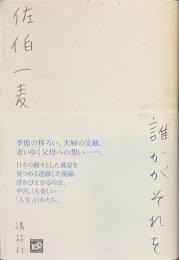 誰かがそれを
佐伯一麦
季節の移ろい、夫婦の交歓、
老いゆく父母への想い――。
日々の細々とした風景を
見つめる透徹した視線。
浮かび上がるのは、
やさしくも美しい
「人生」のかたち。
講談社